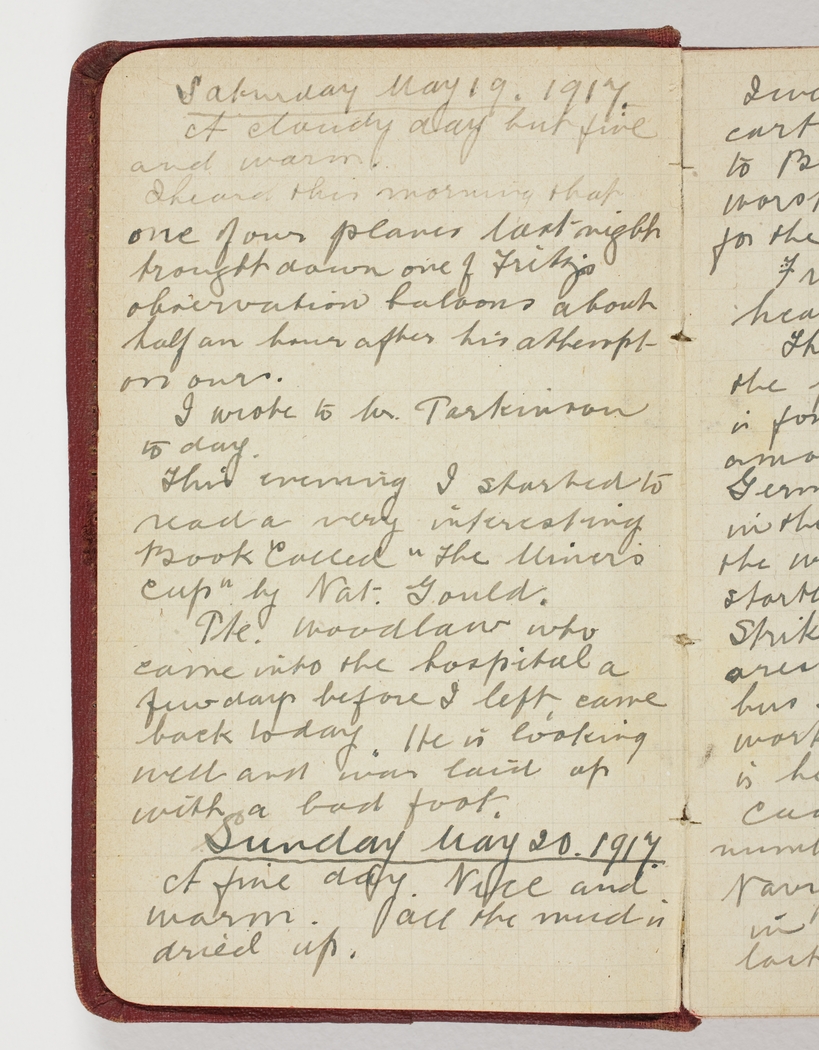 Saturday May 19. 1917.
A cloudy day but fine
and warm.
I heard this morning that
one of our planes last night
brought down one of Fritz's
observation baloons about
half an hour after his attempt
on ours.
I wrote to Mr. Parkinson
to day.
This evening I started to
read a very interesting
Book Called "The Miner's
Cup" by Nat. Gould.
Pte. Woodlaw who
came into the hospital a
few days before I left, came
back today. He is looking
well and was laid up
with a bad foot.
Sunday May 20. 1917.
A fine day. Nice and
warm. All the mud is
dried up.
I
cart
to B
worst
for the
Fr
hea
Th
the
is for
amo
Germ
in the
the w
starte
Strik
ares
bus
work
is he
Cau
numb
Navv
in
lack